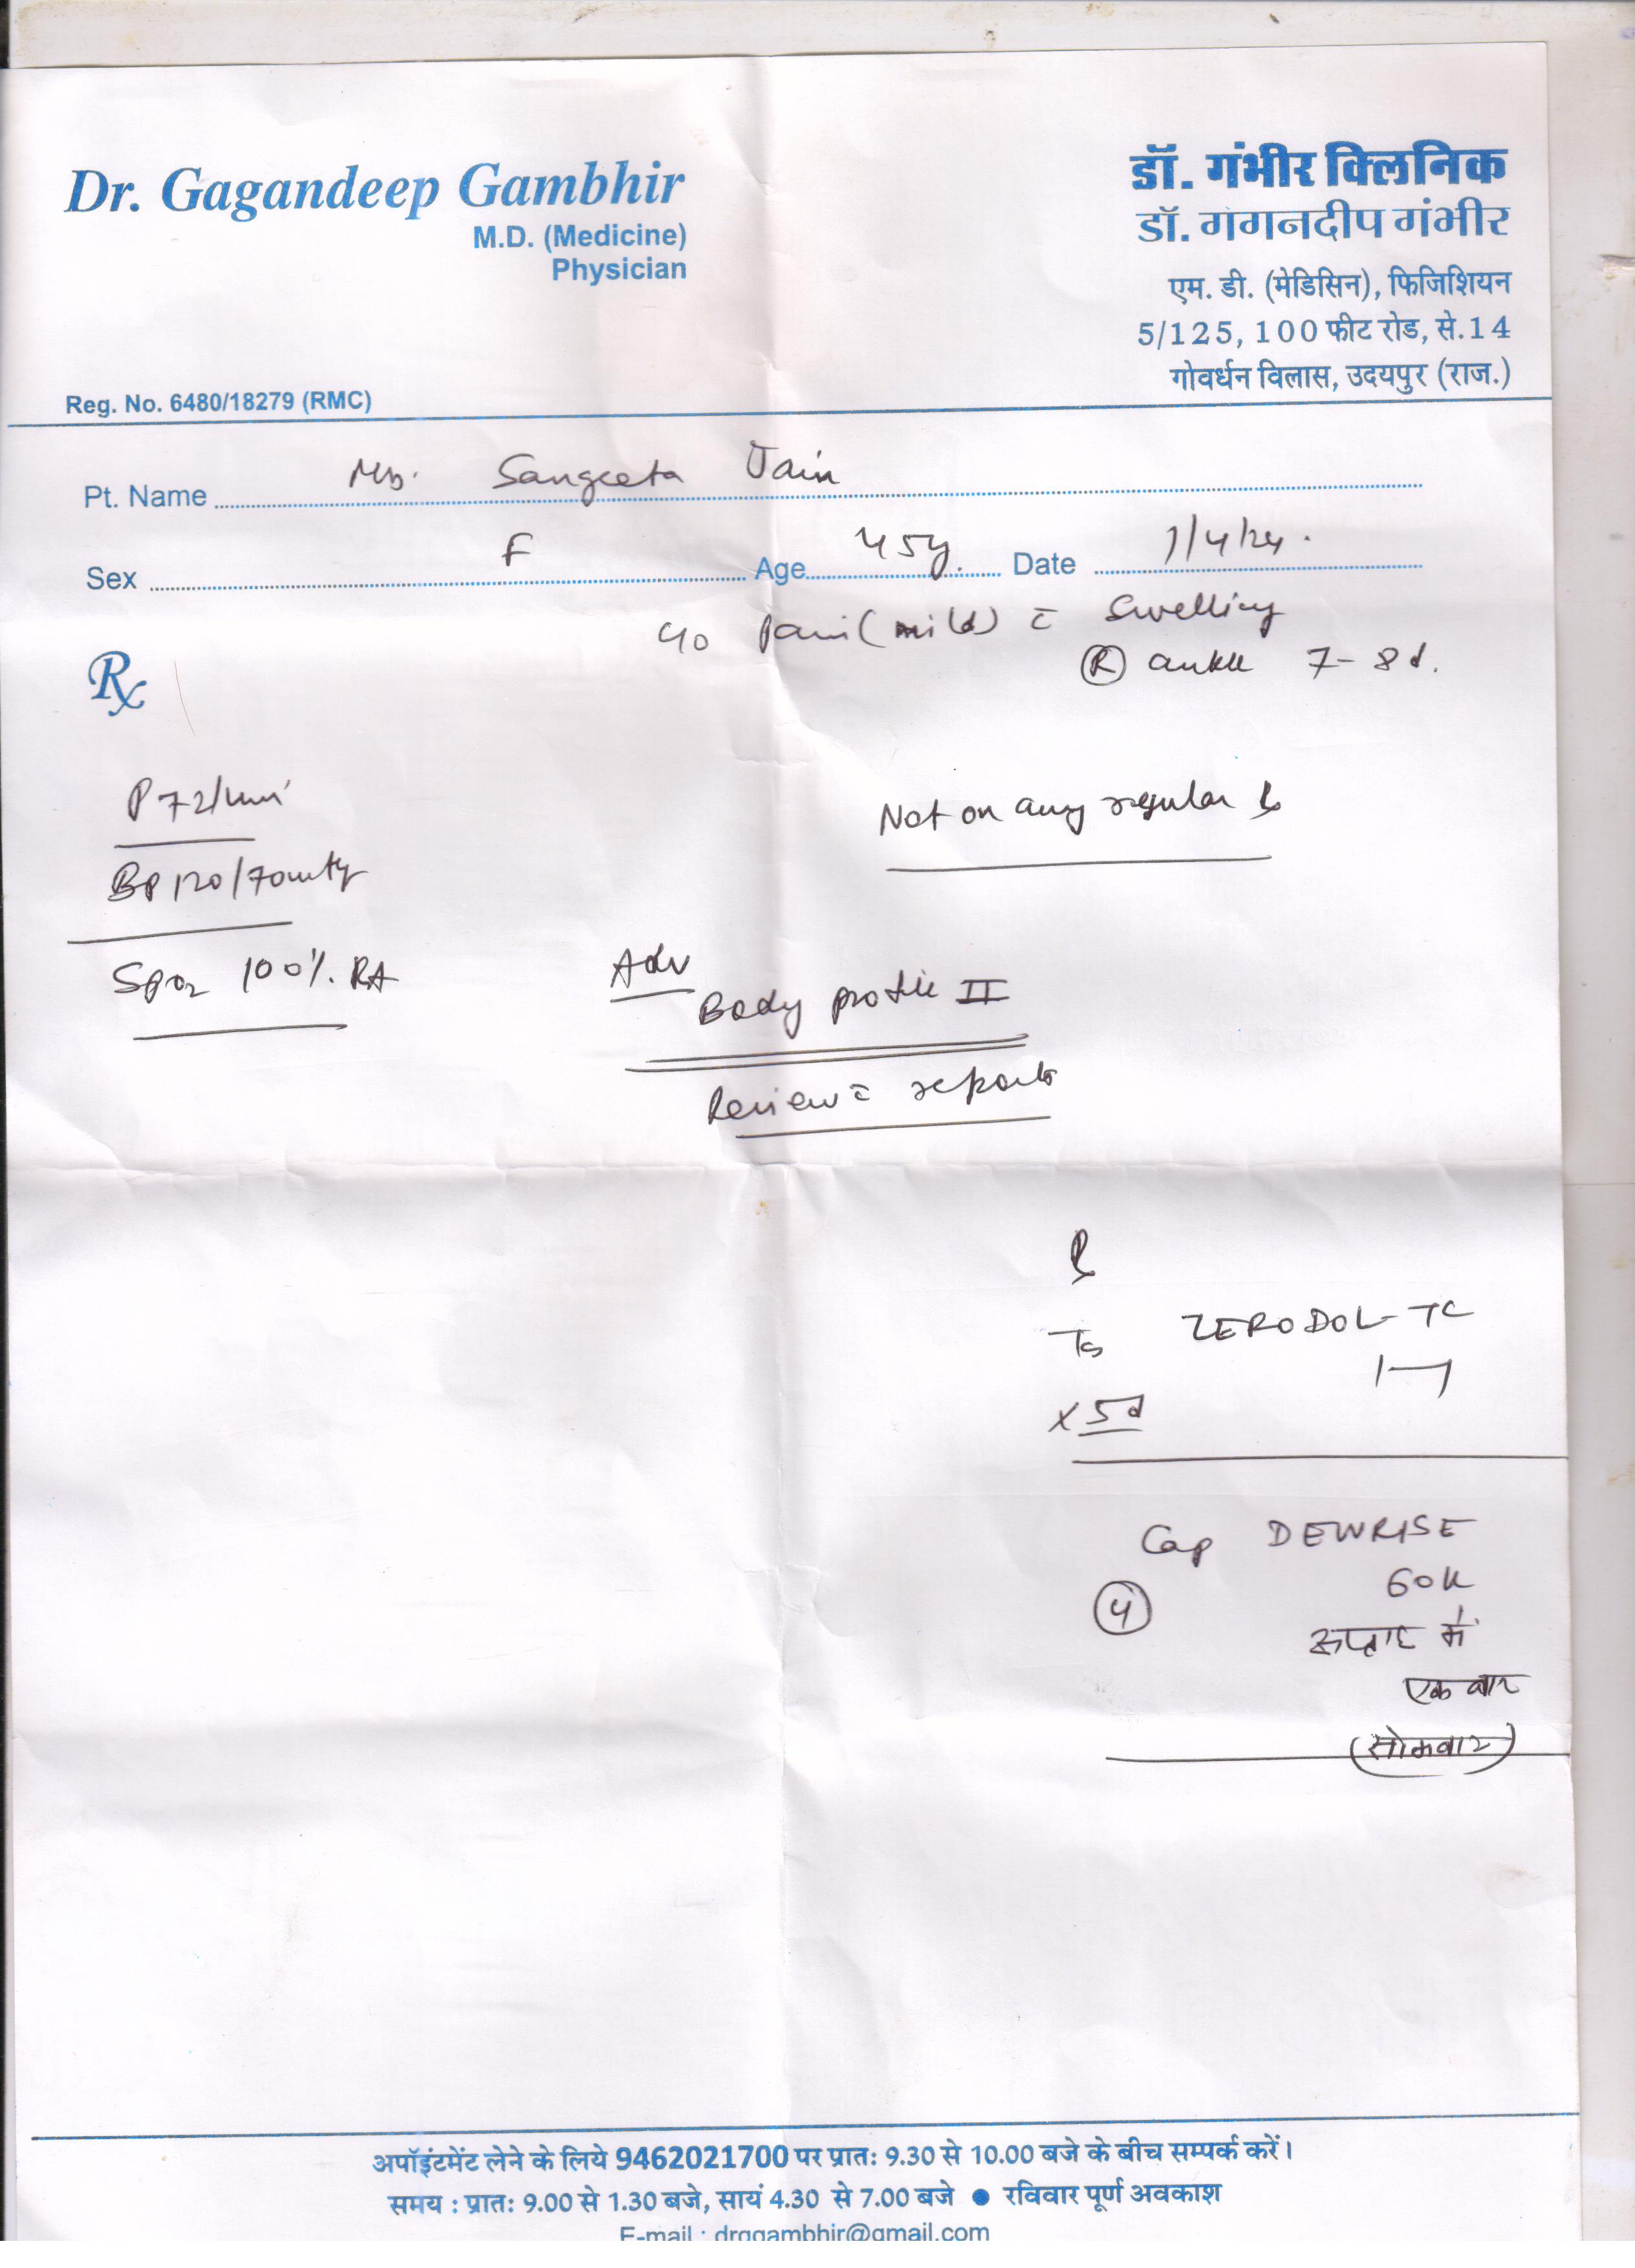 Dr. Gagandeep Gambhir
M.D. (Medicine)
Physician
Reg. No. 6480/18279 (RMC)
डॉ. गंभीर क्लिनिक
डॉ. गगनदीप गंभीर
एम. डी. (मेडिसिन), फिजिशियन
5/125, 100 फीट रोड, से.14
गोवर्धन विलास, उदयपुर (राज.)
Pt. Name Mrs. Sangeeta Jain
Sex F Age 45y. Date 1/4/24.
c/o pain (mild) c̄ swelling
Ⓡ ankle 7-8d.
Rx
P 72/min
Not on any regular Rx
BP 120/70mmHg
SpO2 100%. RA
Adv
Body profile II
Review c̄ reports
Rx
Tb ZERODOL-TC
1—1
x 5d
Cap DEWRISE
60K
④
सप्ताह में
एक बार
(सोमवार)
अपॉइंटमेंट लेने के लिये 9462021700 पर प्रातः 9.30 से 10.00 बजे के बीच सम्पर्क करें।
समय : प्रातः 9.00 से 1.30 बजे, सायं 4.30 से 7.00 बजे ● रविवार पूर्ण अवकाश
E-mail : drggambhir@gmail.com